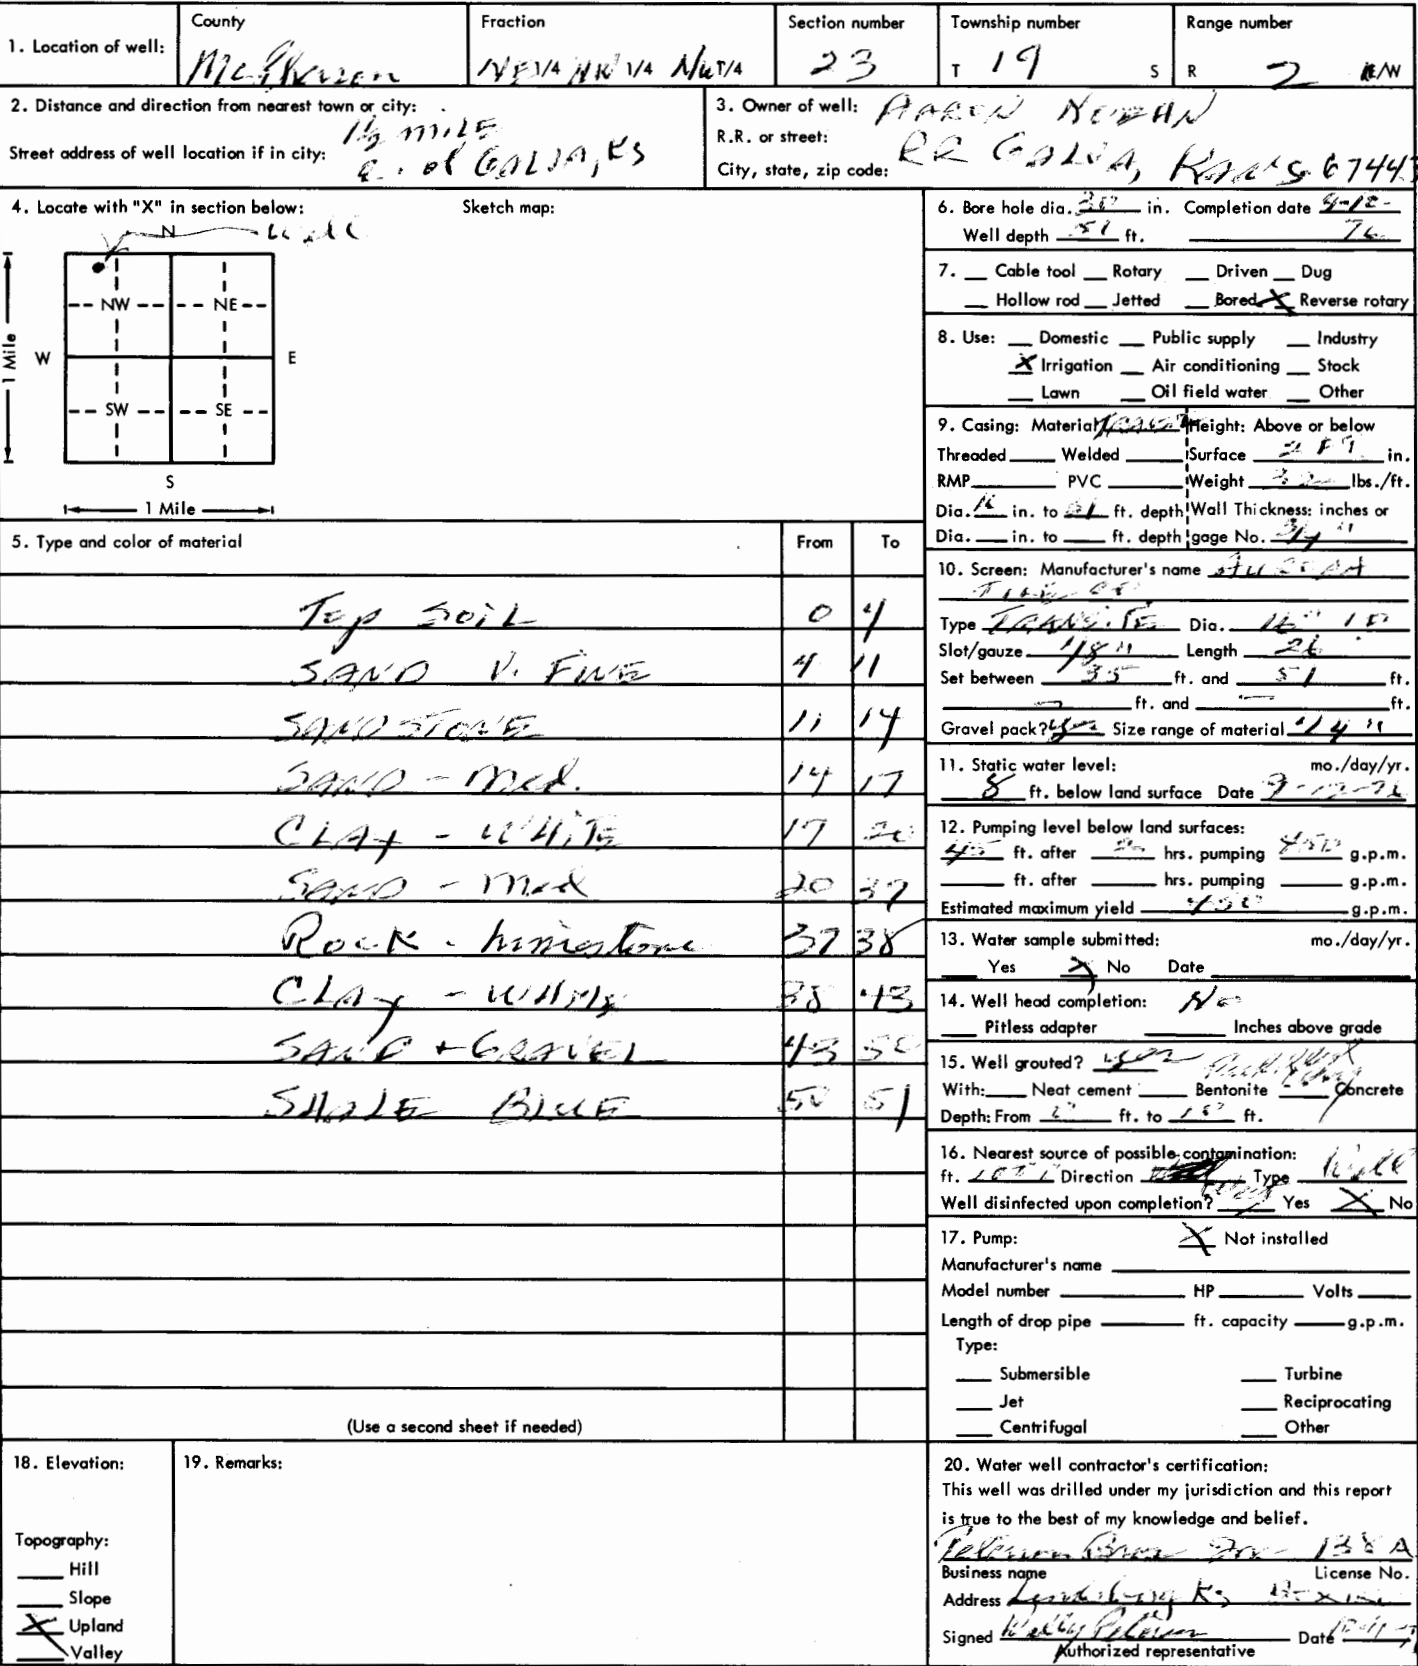 County
Fraction
Section number
Township number
Range number
1. Location of well:
McPherson
NE 1/4 NW 1/4 NW 1/4
23
T 19 S
R 2 E/W
2. Distance and direction from nearest town or city:
1½ mile
Street address of well location if in city:
e. of GALVA, KS
3. Owner of well: AARON
R.R. or street:
City, state, zip code: RR GALVA, Kans 67443
4. Locate with "X" in section below:
Sketch map:
N Well
NW NE
1 Mile W E
SW SE
S
1 Mile
5. Type and color of material From To
Top SOIL 0 4
SAND V. FINE 4 11
SANDSTONE 11 14
SAND - Med. 14 17
CLAY - WHITE 17 20
SAND - Med 20 37
Rock - Limestone 37 38
CLAY - White 38 43
SAND + GRAVEL 43 50
SHALE BLUE 50 51
(Use a second sheet if needed)
6. Bore hole dia. 30 in. Completion date 9-12-
Well depth 51 ft. 76
7. Cable tool Rotary Driven Dug
Hollow rod Jetted Bored X Reverse rotary
8. Use: Domestic Public supply Industry
X Irrigation Air conditioning Stock
Lawn Oil field water Other
9. Casing: Material Height: Above or below
Threaded Welded Surface in.
RMP PVC Weight lbs./ft.
Dia. 16 in. to ft. depth Wall Thickness: inches or
Dia. in. to ft. depth gage No. 3/4"
10. Screen: Manufacturer's name
Type Dia. 16"
Slot/gauze 1/8" Length
Set between 35 ft. and 51 ft.
ft. and ft.
Gravel pack? yes Size range of material 1/4"
11. Static water level: mo./day/yr.
8 ft. below land surface Date 9-12-76
12. Pumping level below land surfaces:
45 ft. after hrs. pumping 450 g.p.m.
ft. after hrs. pumping g.p.m.
Estimated maximum yield 450 g.p.m.
13. Water sample submitted: mo./day/yr.
Yes X No Date
14. Well head completion: No
Pitless adapter Inches above grade
15. Well grouted? yes
With: Neat cement Bentonite Concrete
Depth: From 0 ft. to 10 ft.
16. Nearest source of possible contamination:
ft. Direction Type Well
Well disinfected upon completion? Yes X No
17. Pump: X Not installed
Manufacturer's name
Model number HP Volts
Length of drop pipe ft. capacity g.p.m.
Type:
Submersible Turbine
Jet Reciprocating
Centrifugal Other
18. Elevation:
Topography:
Hill
Slope
X Upland
Valley
19. Remarks:
20. Water well contractor's certification:
This well was drilled under my jurisdiction and this report
is true to the best of my knowledge and belief.
Peterson Bros Inc 138 A
Business name License No.
Address Lindsborg Ks Box
Signed Peterson Date
Authorized representative